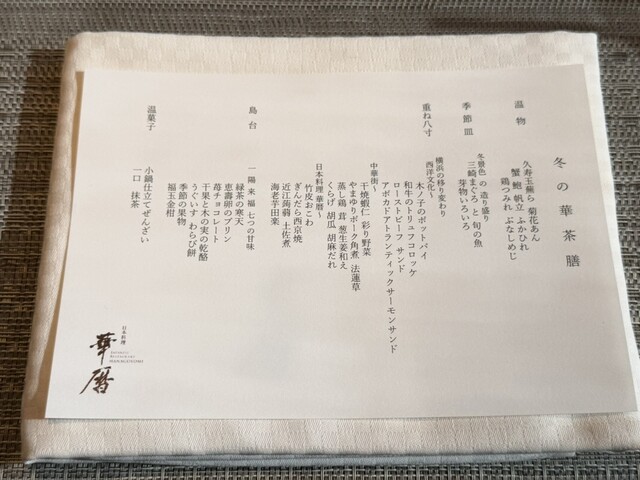 冬の華茶膳
温物
久寿玉蕪ら 菊花あん
蟹 鮑 帆立 ふかひれ
鶏つみれ ぶなしめじ
季節皿
冬景色の造り盛り
三崎まぐろ と 旬の魚
芽物いろいろ
重ね八寸
横浜の移り変わり
西洋文化～
木ノ子のポットパイ
和牛のトリュフコロッケ
ローストビーフ サンド
アボカドアトランティックサーモンサンド
中華街～
干焼蝦仁 彩り野菜
やまゆりポーク角煮 法蓮草
蒸し鶏 茸 葱生姜和え
くらげ 胡瓜 胡麻だれ
日本料理 華暦～
竹皮おこわ
ぎんだら西京焼
近江蒟蒻 土佐煮
海老芋田楽
島台
一陽来福 七つの甘味
緑茶の寒天
恵壽卵のプリン
苺チョコレート
干果と木の実の乾酪
うぐいす わらび餅
季節の果物
福玉金柑
温菓子
小鍋仕立てぜんざい
一口 抹茶
日本料理
華暦
JAPANESE RESTAURANT
HANAGOYOMI